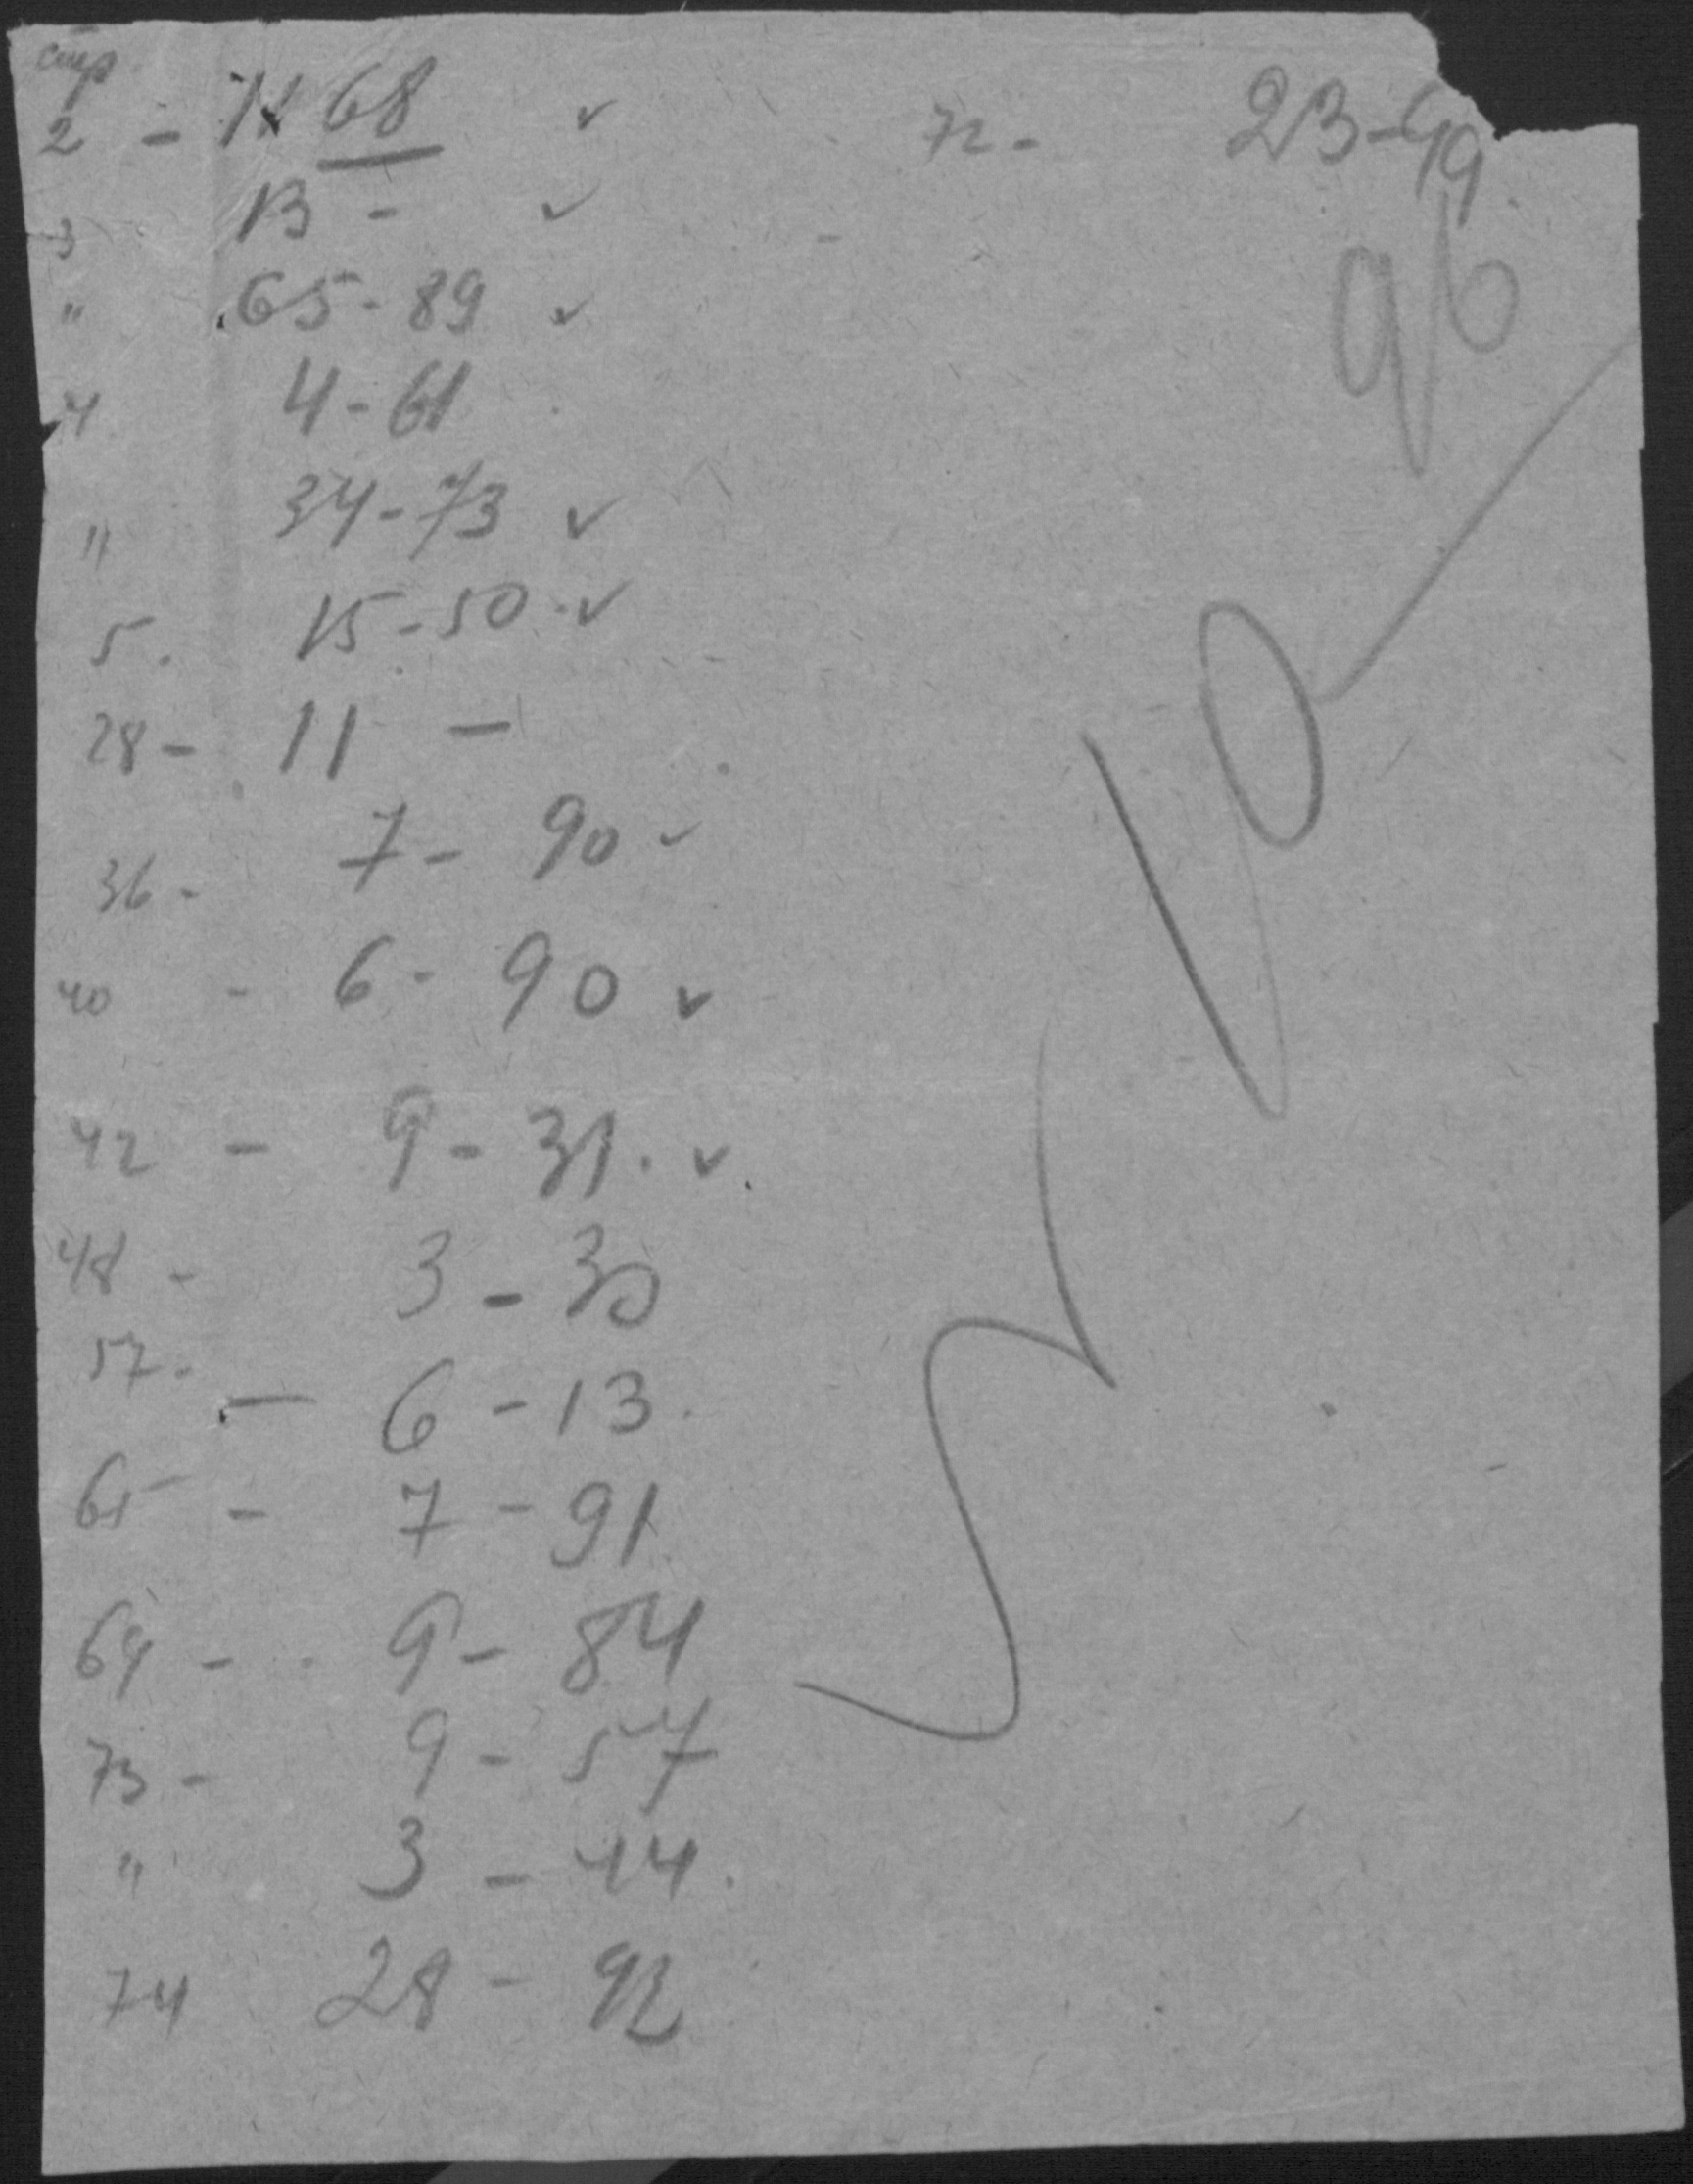 стр.
2 - 11 68 ✓
3 13 - ✓
" 65-89 ✓
4 4-61
" 34-73 ✓
5. 15-50. ✓
28- 11 -
36- 7- 90 ✓
40 - 6- 90 ✓
42 - 9-31. ✓
48 - 3-30
57. - 6-13.
65 - 7-91
69 - 9-84
73 - 9-57
" 3-44.
74 28-92
72- 23-99
96